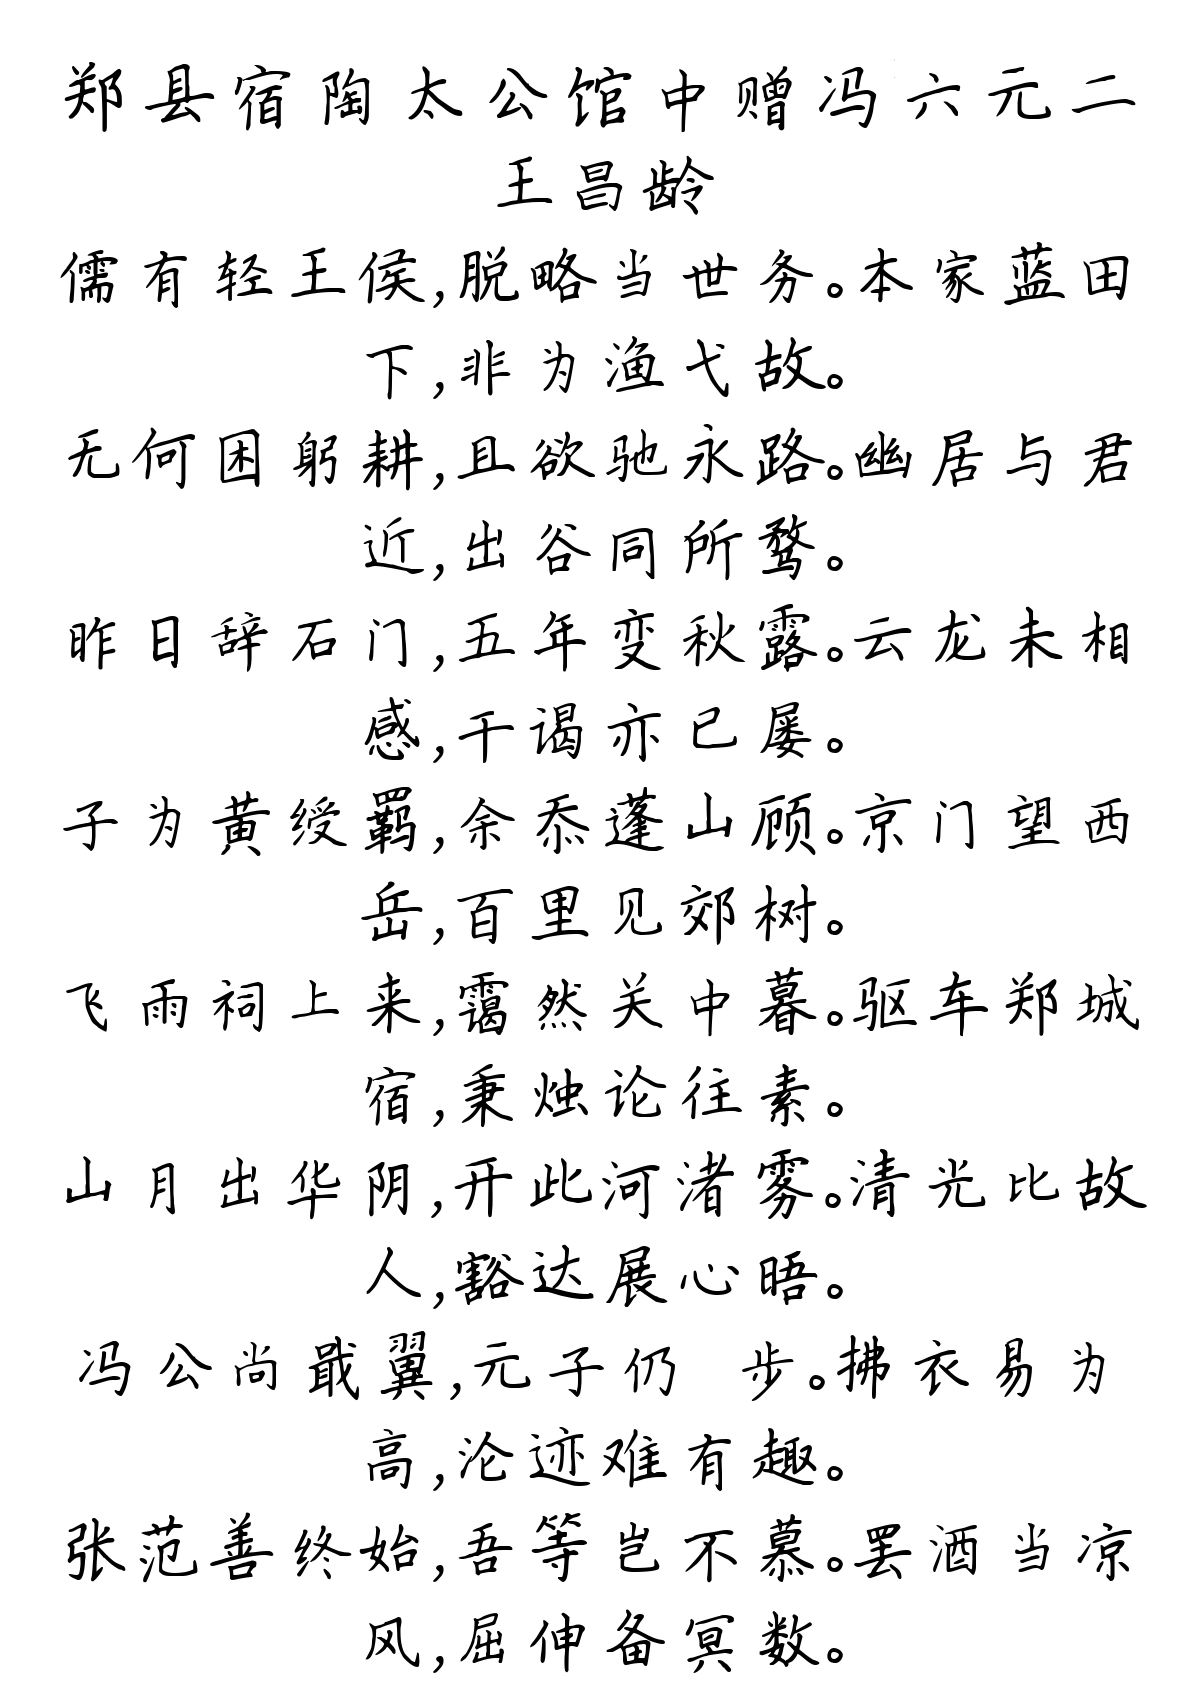 郑县宿陶太公馆中赠冯六元二
王昌龄
儒有轻王侯,脱略当世务。本家蓝田
下,非为渔弋故。
无何困躬耕,且欲驰永路。幽居与君
近,出谷同所骛。
昨日辞石门,五年变秋露。云龙未相
感,干谒亦已屡。
子为黄绶羁,余忝蓬山顾。京门望西
岳,百里见郊树。
飞雨祠上来,霭然关中暮。驱车郑城
宿,秉烛论往素。
山月出华阴,开此河渚雾。清光比故
人,豁达展心晤。
冯公尚戢翼,元子仍 步。拂衣易为
高,沦迹难有趣。
张范善终始,吾等岂不慕。罢酒当凉
风,屈伸备冥数。